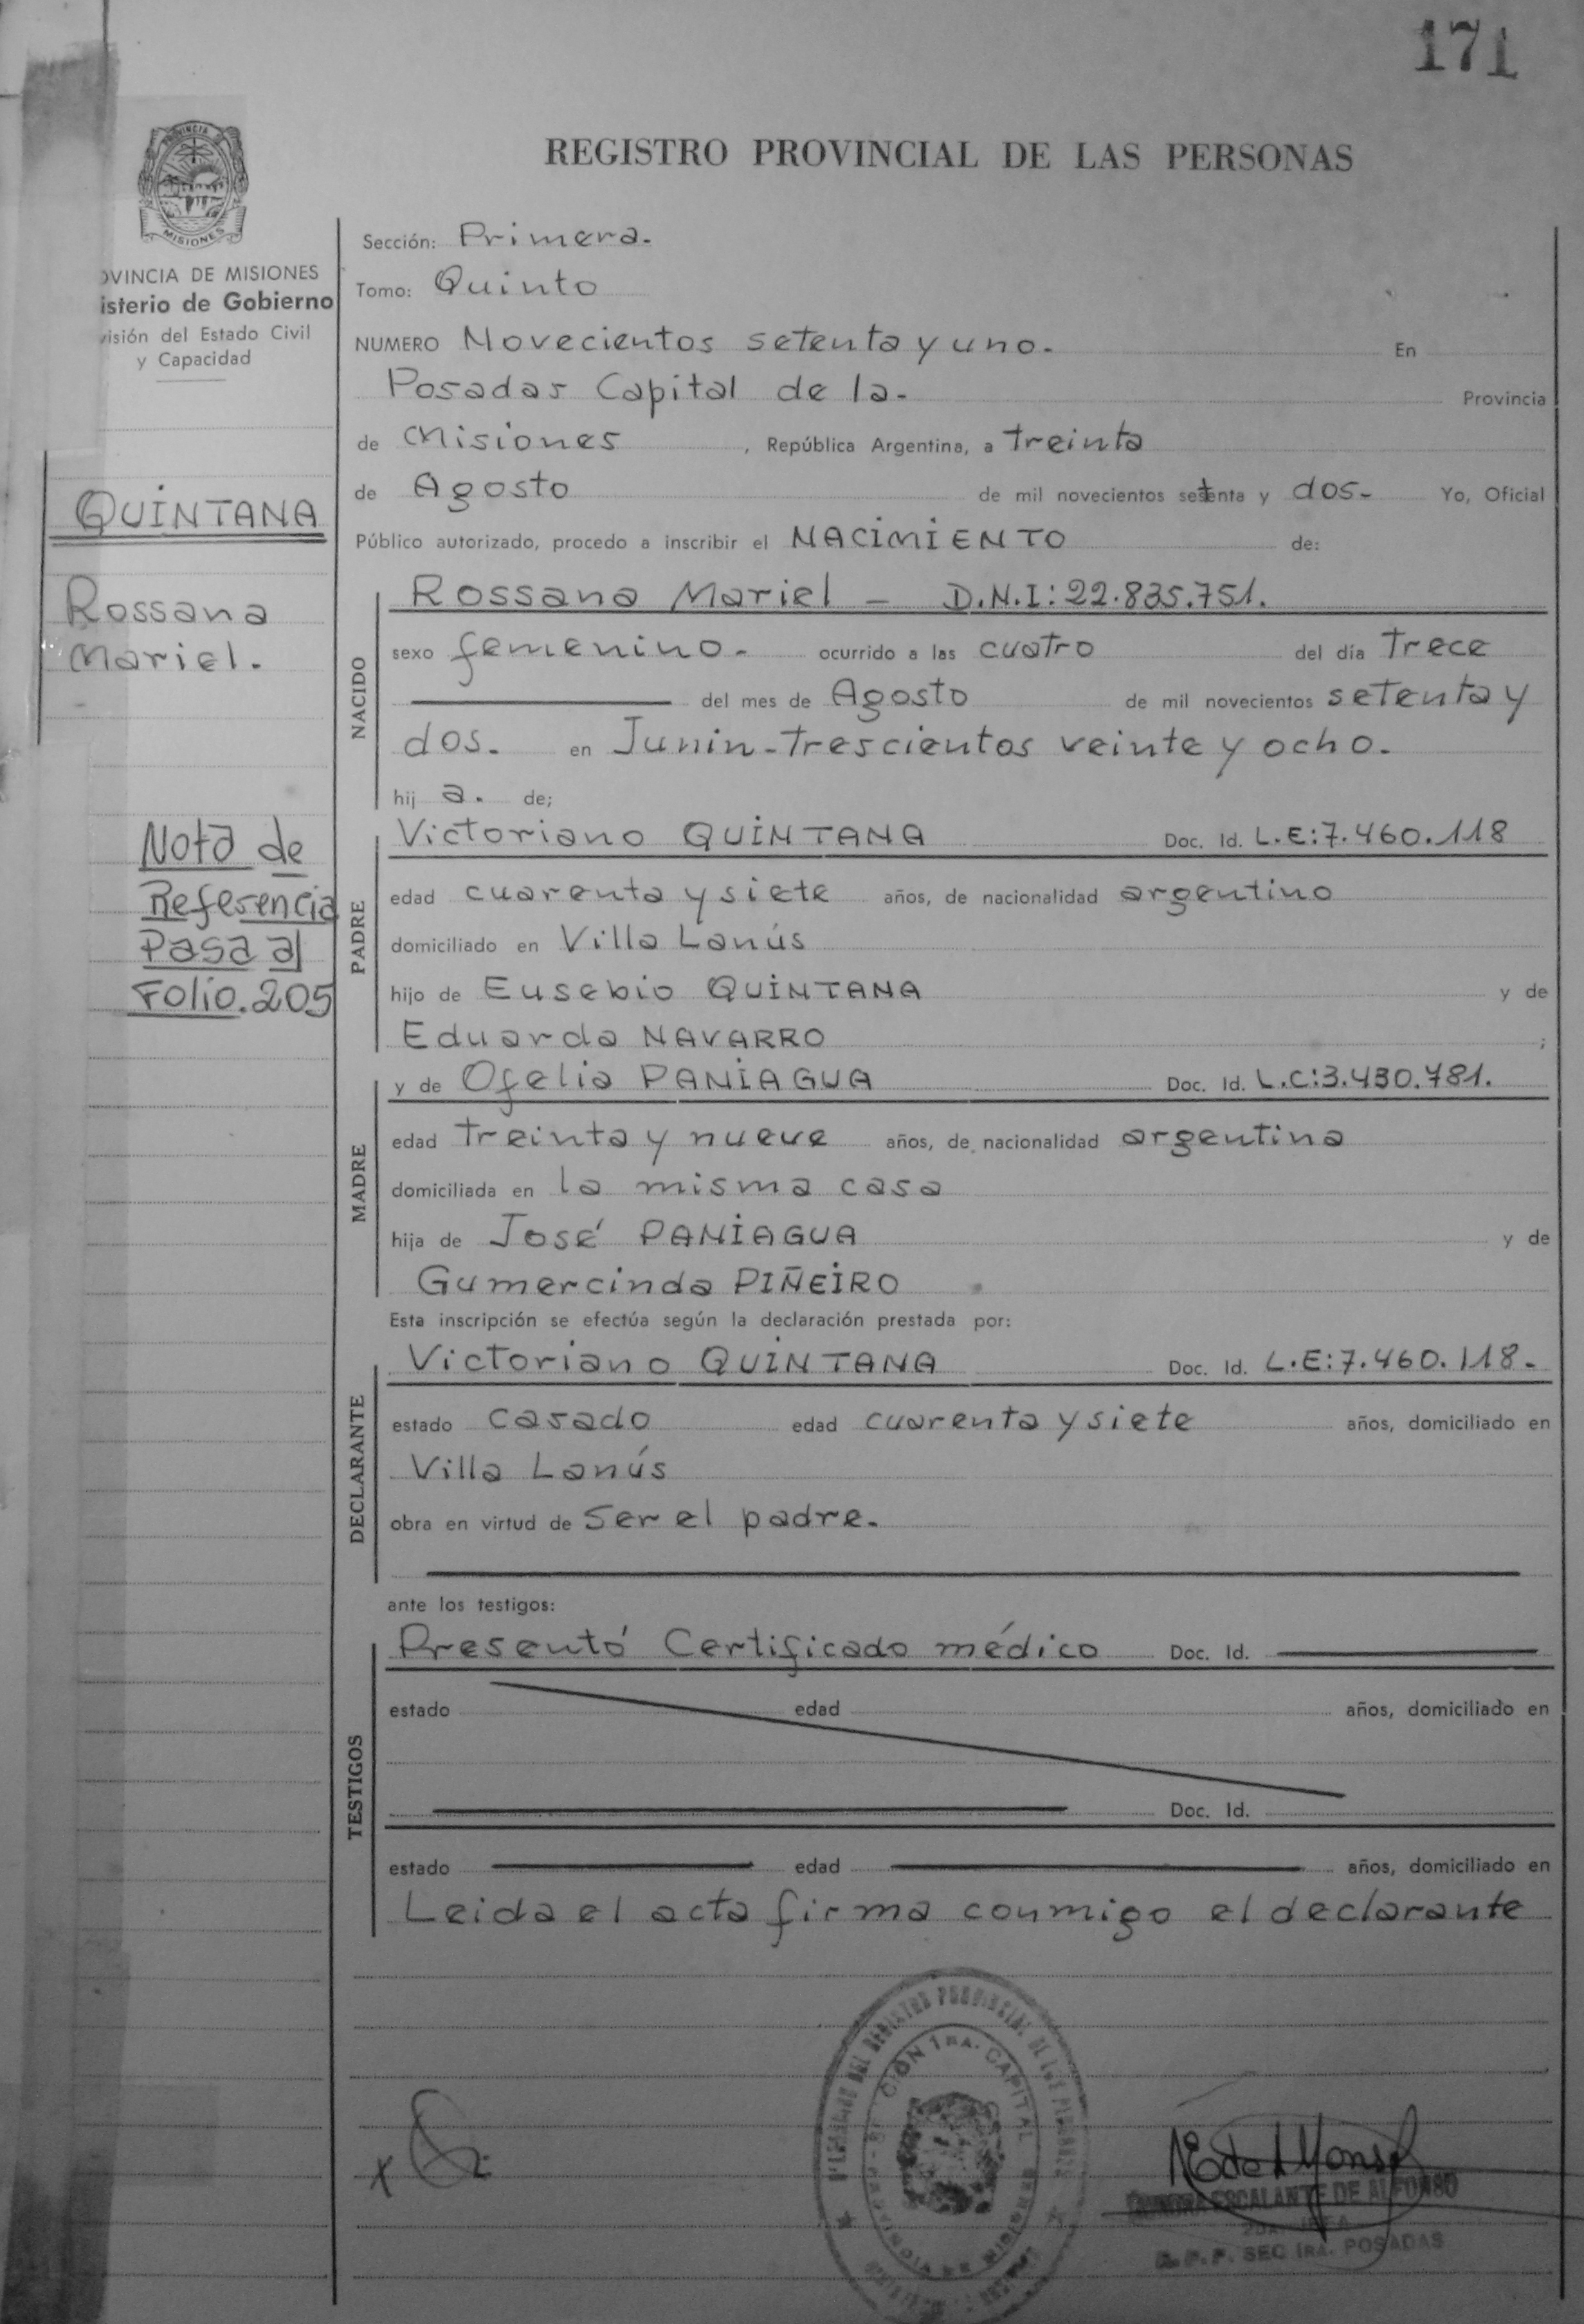 171
REGISTRO PROVINCIAL DE LAS PERSONAS
PROVINCIA DE
MISIONES
OVINCIA DE MISIONES
isterio de Gobierno
visión del Estado Civil
y Capacidad
QUINTANA
Rossana
Mariel.
Nota de
Referencia
Pasa al
Folio.205
Sección: Primera.
Tomo: Quinto
NUMERO Novecientos setenta y uno. En
Posadas Capital de la- Provincia
de Misiones, República Argentina, a treinta
de Agosto de mil novecientos setenta y dos- Yo, Oficial
Público autorizado, procedo a inscribir el NACIMIENTO de:
NACIDO
Rossana Mariel - D.N.I: 22.835.751.
sexo femenino. ocurrido a las cuatro del día trece
del mes de Agosto de mil novecientos setenta y
dos. en Junin-trescientos veinte y ocho.
hij a. de;
PADRE
Victoriano QUINTANA Doc. Id. L.E:7.460.118
edad cuarenta y siete años, de nacionalidad argentino
domiciliado en Villa Lanús
hijo de Eusebio QUINTANA y de
Eduarda NAVARRO ;
MADRE
y de Ofelia PANIAGUA Doc. Id. L.C:3.430.781.
edad treinta y nueve años, de nacionalidad argentina
domiciliada en la misma casa
hija de José PANIAGUA y de
Gumercinda PIÑEIRO
Esta inscripción se efectúa según la declaración prestada por:
DECLARANTE
Victoriano QUINTANA Doc. Id. L.E:7.460.118-
estado casado edad cuarenta y siete años, domiciliado en
Villa Lanús
obra en virtud de ser el padre.
ante los testigos:
TESTIGOS
Presentó Certificado médico Doc. Id.
estado edad años, domiciliado en
Doc. Id.
estado edad años, domiciliado en
Leida el acta firma conmigo el declarante
DEL REGISTRO PROVINCIAL DE LAS PERSONAS
CION 1RA. CAPITAL
ESCALANTE DE ALFONSO
R.P.P. SEC 1RA. POSADAS